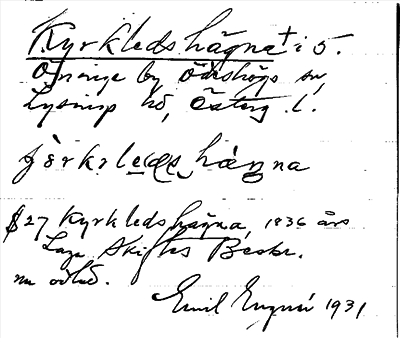 Kyrkledshägna † i 5.
Öjninge by Ödeshögs sn,
Lysings hd, Österg. l.
jèrkɩledshàgna
§ 27 Kyrkledshägna, 1836 års
Laga Skiftes Beskr.
nu odlad.
Emil 1931